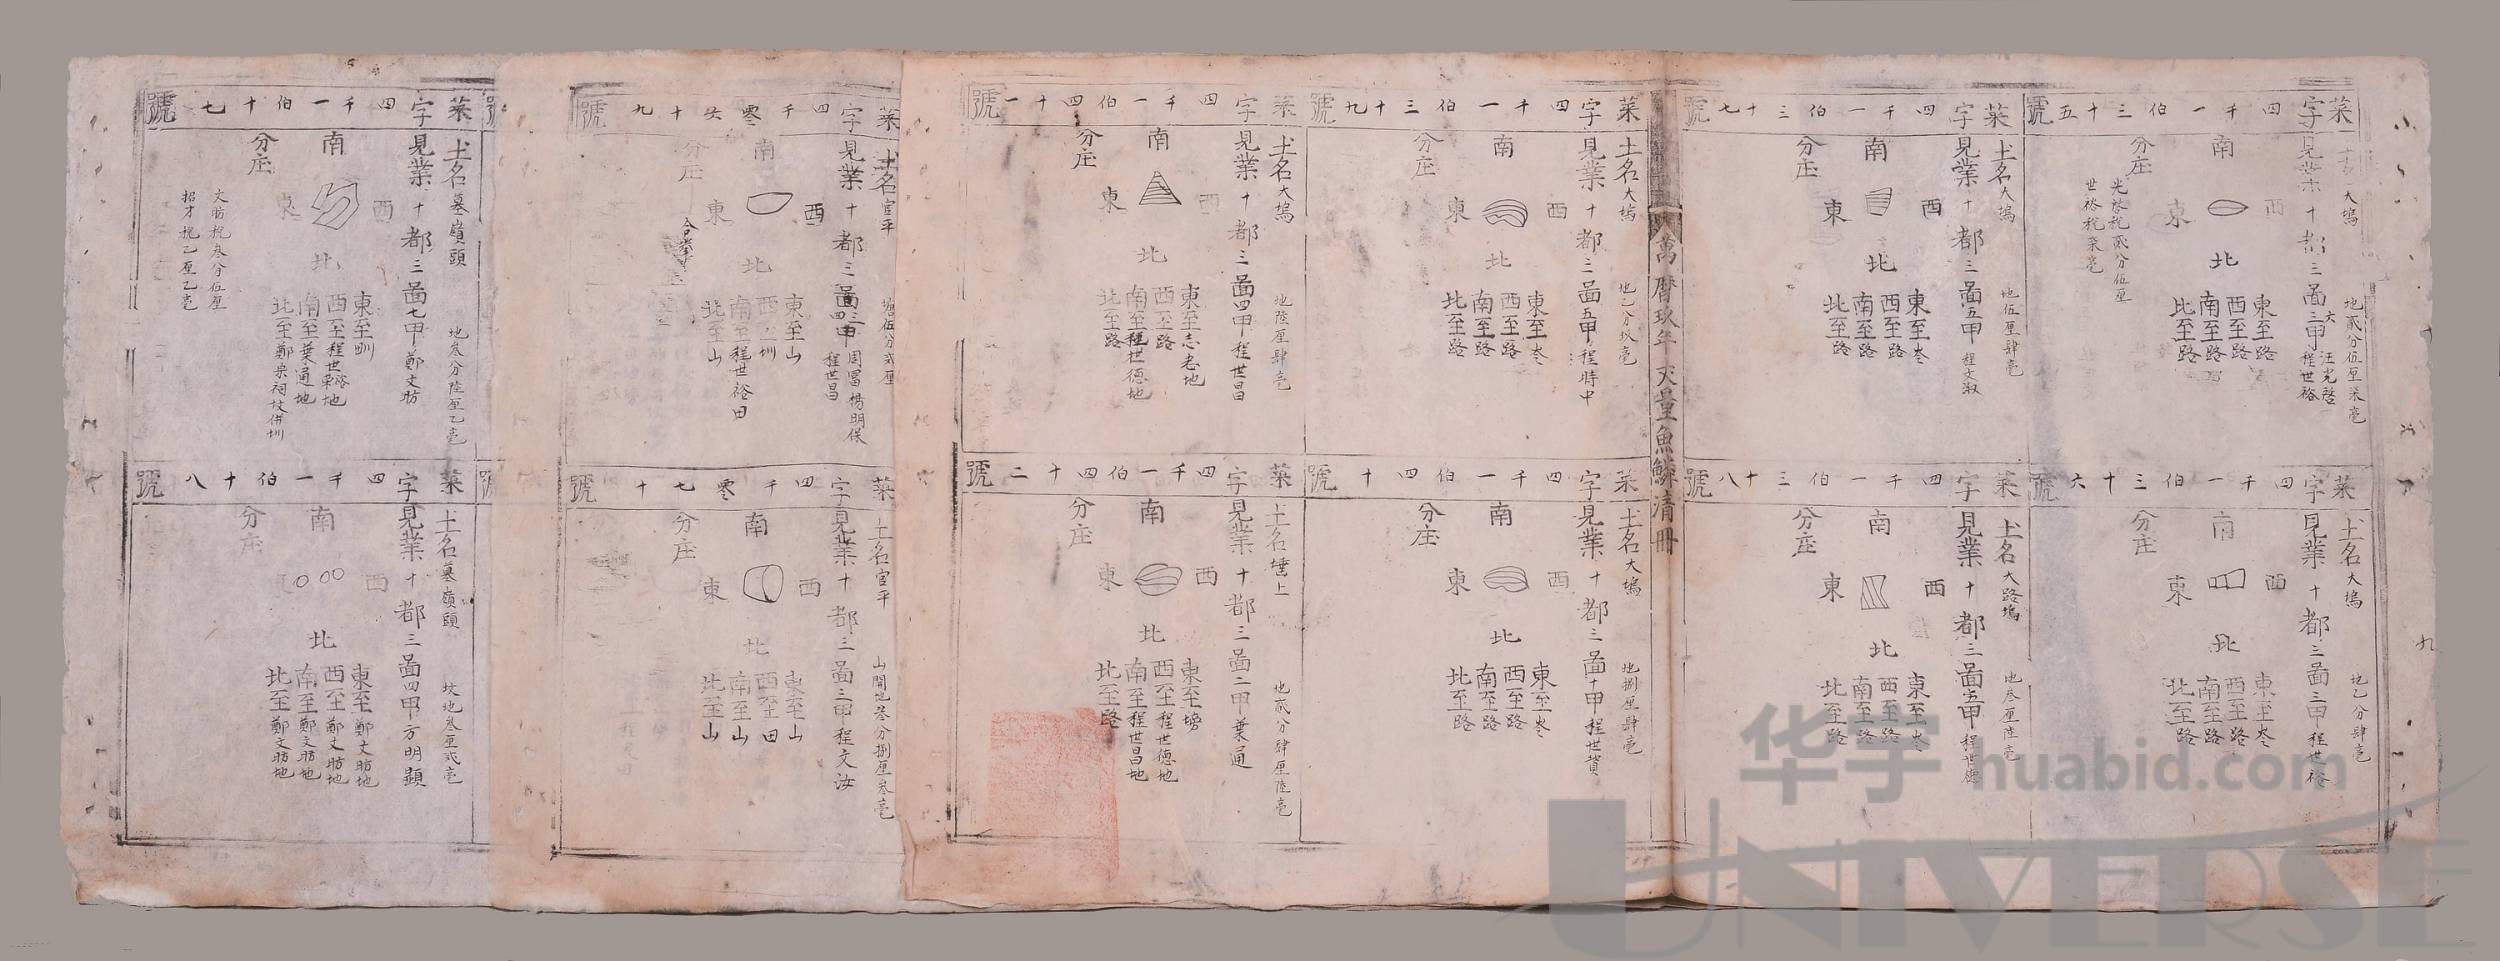 菜字四千一伯三十五號
土名大塢 地貳分伍厘柒毫
見業十都三啚三甲程世裕 六甲汪光啓
南
東 西
北
東至路
西至路
南至路
北至路
分庄
光啓稅貳分伍厘
世裕稅柒毫
菜字四千一伯三十六號
土名大塢 地乙分肆毫
見業十都三啚三甲程世裕
南
東 西
北
東至岺
西至路
南至路
北至路
分庄
菜字四千一伯三十七號
土名大塢 地伍厘肆毫
見業十都三啚五甲程文淑
南
東 西
北
東至岺
西至路
南至路
北至路
分庄
菜字四千一伯三十八號
土名大路塢 地叁厘陸毫
見業十都三啚五甲程世德
南
東 西
北
東至岺
西至路
南至路
北至路
分庄
萬曆玖年丈量魚鱗清冊
菜字四千一伯三十九號
土名大塢 地乙分玖毫
見業十都三啚五甲程時中
南
東 西
北
東至岺
西至路
南至路
北至路
分庄
菜字四千一伯四十號
土名大塢 地捌厘肆毫
見業十都三啚十甲程世賛
南
東 西
北
東至岺
西至路
南至路
北至路
分庄
菜字四千一伯四十一號
土名大塢 地陸厘肆毫
見業十都三啚四甲程世昌
南
東 西
北
東至志老地
西至路
南至程世德地
北至路
分庄
菜字四千一伯四十二號
土名塝上 地貳分肆厘陸毫
見業十都三啚二甲葉通
南
東 西
北
東至塝
西至程世德地
南至程世昌地
北至路
分庄
菜字四千零六十九號
土名官平 塘伍分貳厘
見業十都三啚三甲周冨楊明保 四甲程世昌
南
東 西
北
東至山
西至圳
南至程世裕田
北至山
分庄
菜字四千零七十號
土名官平 山開地叁分捌厘叁毫
見業十都三啚三甲程文汝
南
東 西
北
東至山
西至田
南至山
北至山
分庄
菜字四千一伯十七號
土名墓嶺頭 地叁分陸厘乙毫
見業十都三啚七甲鄭文昉
南
東 西
北
東至圳
西至程世裕地
南至葉通地
北至鄭宗祠坟併圳
分庄
文昉稅叁分伍厘
招才稅乙厘乙毫
菜字四千一伯十八號
土名墓嶺頭 坟地叁厘貳毫
見業十都三啚四甲方明顯
南
東 西
北
東至鄭文昉地
西至鄭文昉地
南至鄭文昉地
北至鄭文昉地
分庄
华宇 huabid.com
UNIVERSE